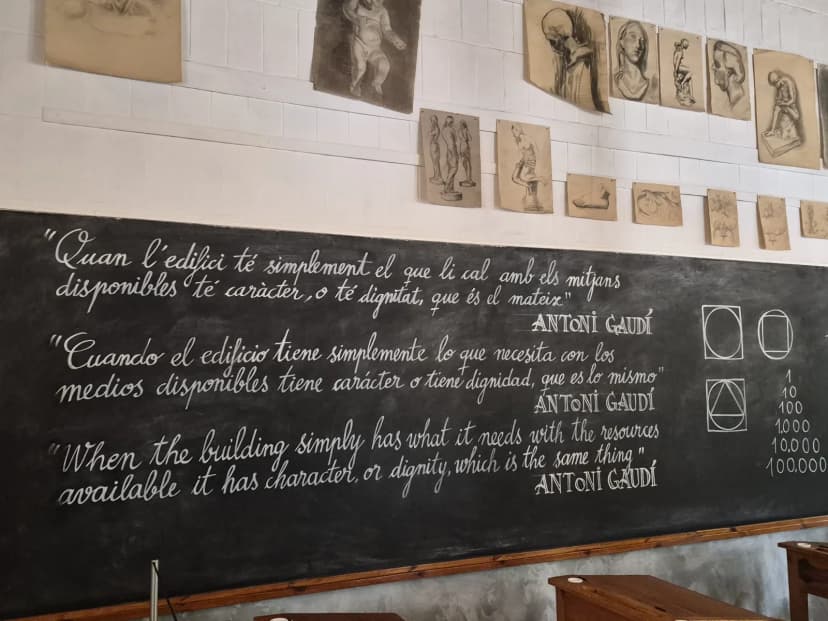 "Quan l'edifici té simplement el que li cal amb els mitjans
disponibles té caràcter, o té dignitat, que és el mateix"
ANTONI GAUDÍ
"Cuando el edificio tiene simplemente lo que necesita con los
medios disponibles tiene carácter o tiene dignidad, que es lo mismo"
ANTONI GAUDÍ
"When the building simply has what it needs with the resources
available it has character, or dignity, which is the same thing"
ANTONI GAUDÍ
1
10
100
1.000
10.000
100.000